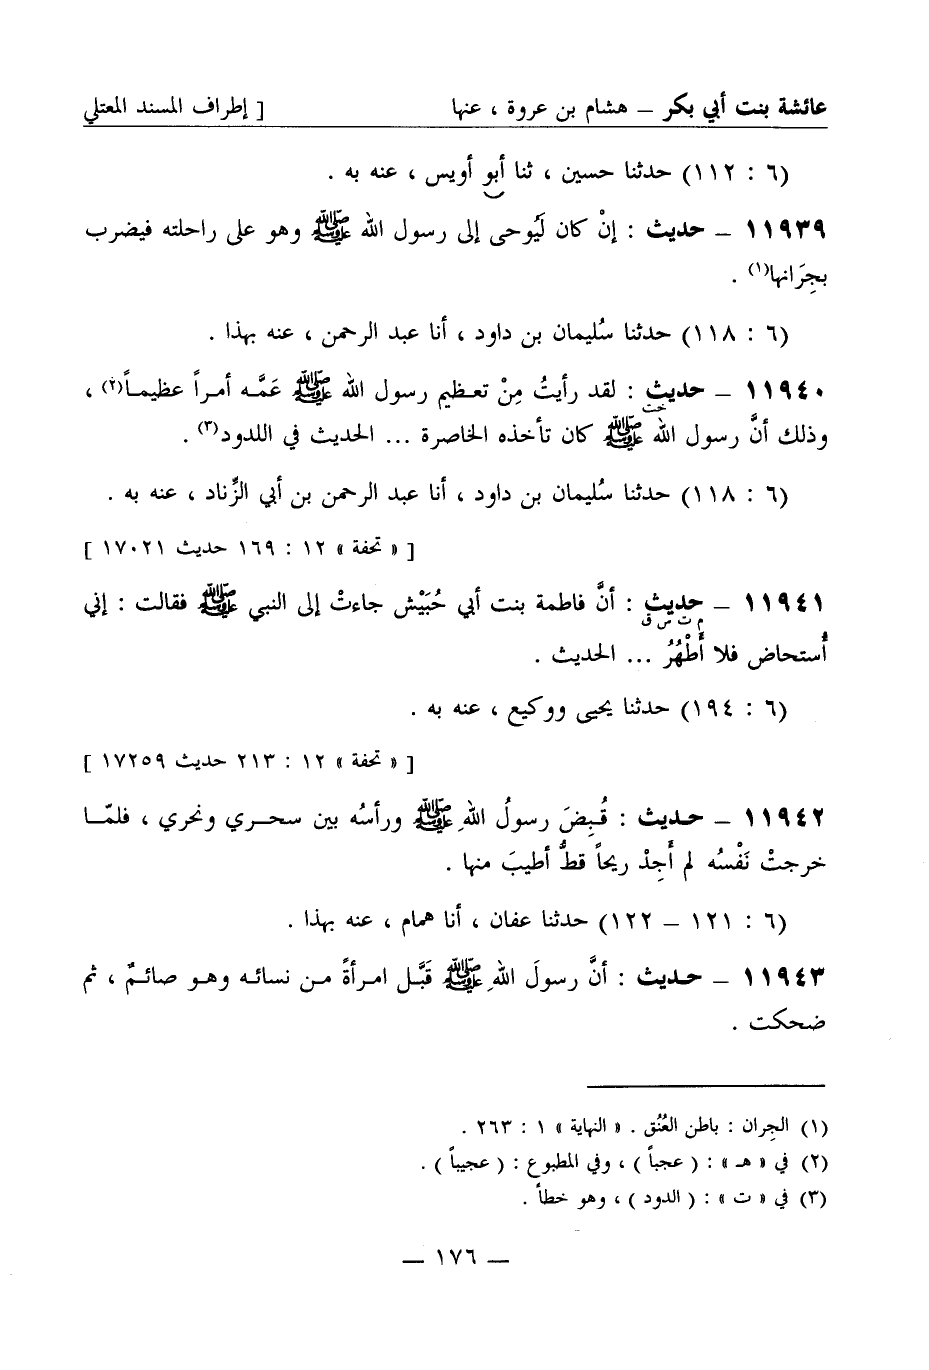 عائشة بنت أبي بكر – هشام بن عروة ، عنها [ إطراف المسند المعتلي
(٦ : ١١٢) حدثنا حسين ، ثنا أبو أويس ، عنه به .
١١٩٣٩ – حديث : إنْ كان لَيُوحى إلى رسول الله ﷺ وهو على راحلته فيضرب
بجِرَانها(١) .
(٦ : ١١٨) حدثنا سُليمان بن داود ، أنا عبد الرحمن ، عنه بهذا .
١١٩٤٠ – حديث : لقد رأيتُ مِنْ تعظيم رسول الله ﷺ عَمَّه أمراً عظيماً(٢) ،
خت
وذلك أنَّ رسول الله ﷺ كان تأخذه الخاصرة ... الحديث في اللدود(٣) .
(٦ : ١١٨) حدثنا سُليمان بن داود ، أنا عبد الرحمن بن أبي الزِّناد ، عنه به .
[ « تحفة » ١٢ : ١٦٩ حديث ١٧٠٢١ ]
١١٩٤١ – حديث : أنَّ فاطمة بنت أبي حُبَيْش جاءتْ إلى النبي ﷺ فقالت : إني
م ت س ق
أُستحاض فلا أَطْهُرُ ... الحديث .
(٦ : ١٩٤) حدثنا يحيى ووكيع ، عنه به .
[ « تحفة » ١٢ : ٢١٣ حديث ١٧٢٥٩ ]
١١٩٤٢ – حديث : قُبِضَ رسولُ اللهِ ﷺ ورأسُه بين سحري ونحري ، فلمّا
خرجتْ نَفْسُه لم أَجِدْ ريحاً قطُّ أطيبَ منها .
(٦ : ١٢١ – ١٢٢) حدثنا عفان ، أنا همام ، عنه بهذا .
١١٩٤٣ – حديث : أنَّ رسولَ اللهِ ﷺ قَبَّل امرأةً من نسائه وهو صائمٌ ، ثم
ضحكت .
(١) الجِران : باطن العُنُق . « النهاية » ١ : ٢٦٣ .
(٢) في « هـ » : ( عجباً ) ، وفي المطبوع : ( عجيباً ) .
(٣) في « ت » : ( الدود ) ، وهو خطأ .
– ١٧٦ –